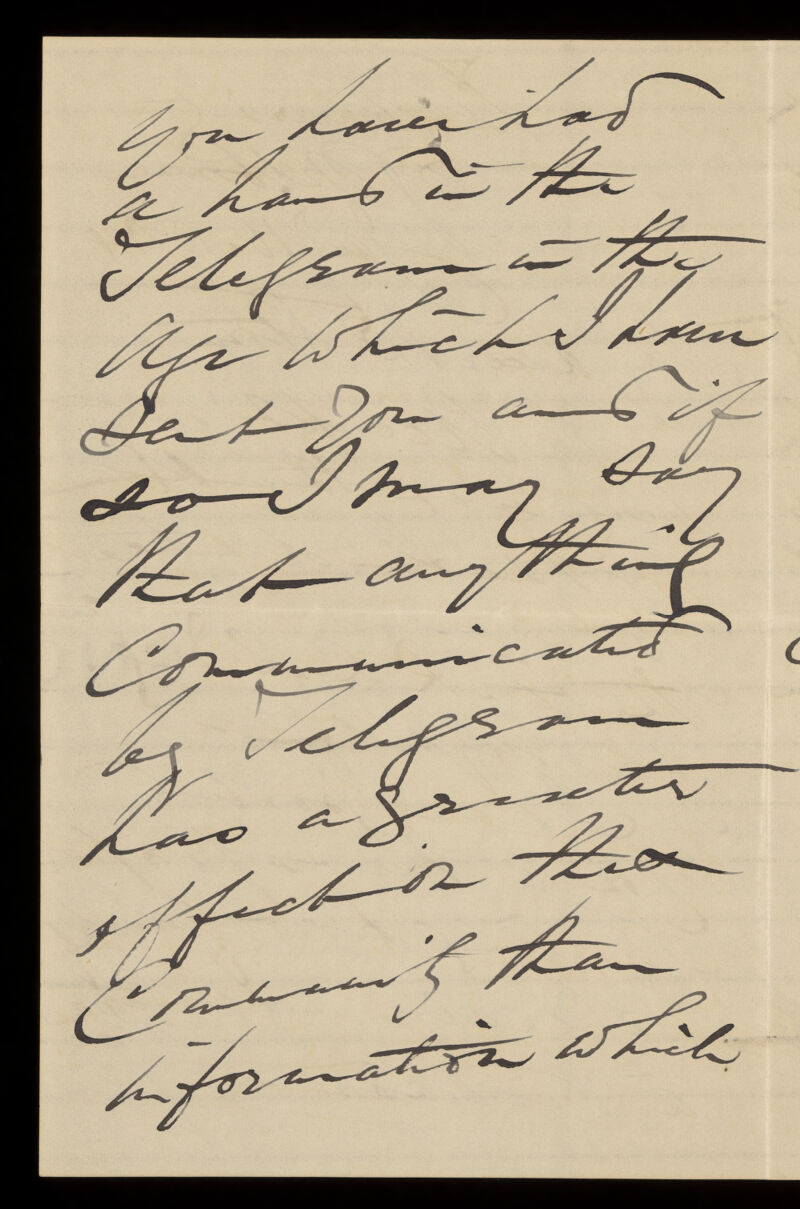 you have had
a hand in the
Telegram in the
Age which I have
sent you and if
so I may say
that anything
Communicated
by Telegram
has a greater
effect on the
Community than
information which